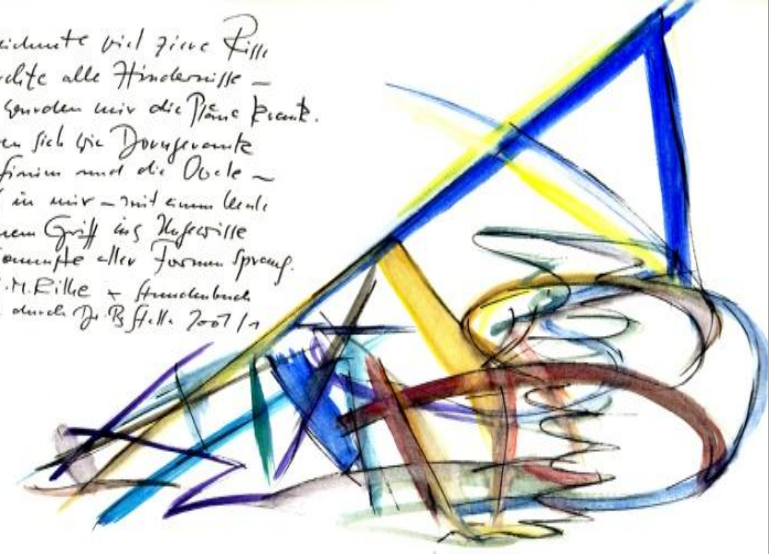 eichnete viel ziere Risse
chte alle Hindernisse –
wurden mir die Pläne krank.
en sich wie Dorngerank
und die Ovale –
in mir – mit einem Male
nem Griff ins Ungewisse
aller Formen sprang.
.M. Rilke Stundenbuch
durch Dr. 2001/1